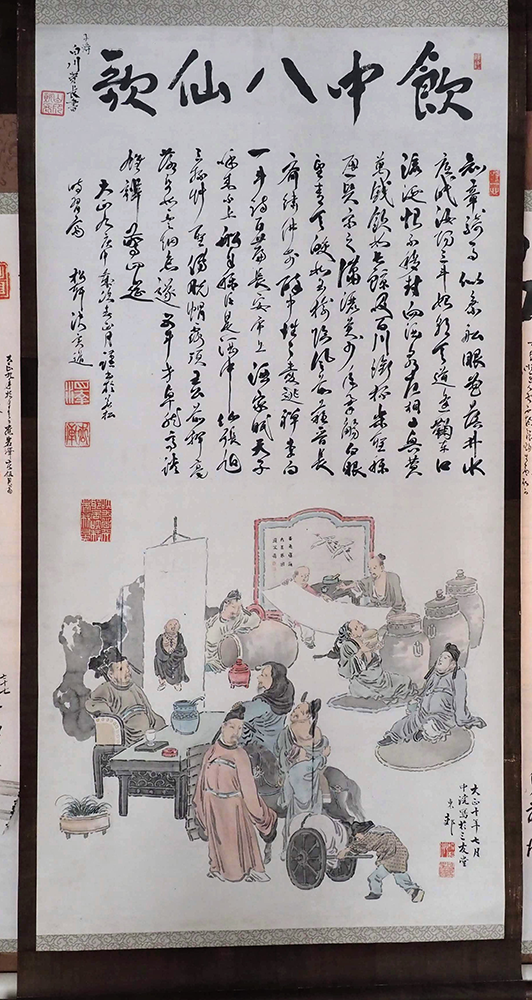 飲中八仙歌
知章騎馬似乘船眼花落井水
底眠汝陽三斗始朝天道逢麴車口
流涎恨不移封向酒泉左相日興費
萬錢飲如長鯨吸百川銜杯樂聖稱
避賢宗之瀟灑美少年擧觴白眼
望青天皎如玉樹臨風前蘇晉長
齋繍佛前醉中往々愛逃禅李白
一斗詩百篇長安市上酒家眠天子
呼來不上船自稱臣是酒中仙張旭
三杯艸聖傳脱帽露頂王公前揮毫
落紙如雲烟焦遂五斗方卓然高談
雄辯驚四筵
大正九庚申
大正十年七月
中浣寫於三友堂